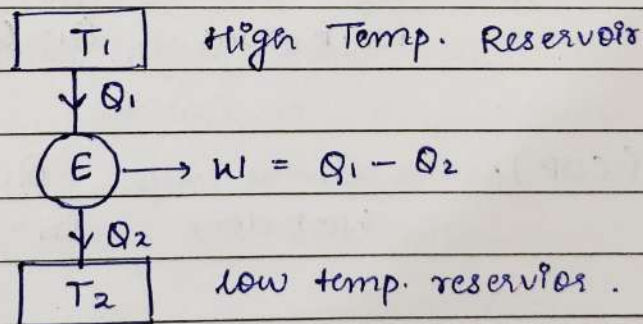 T1 Higher Temp. Reservoir
Q1
E → W = Q1 - Q2
Q2
T2 low temp. reservior.